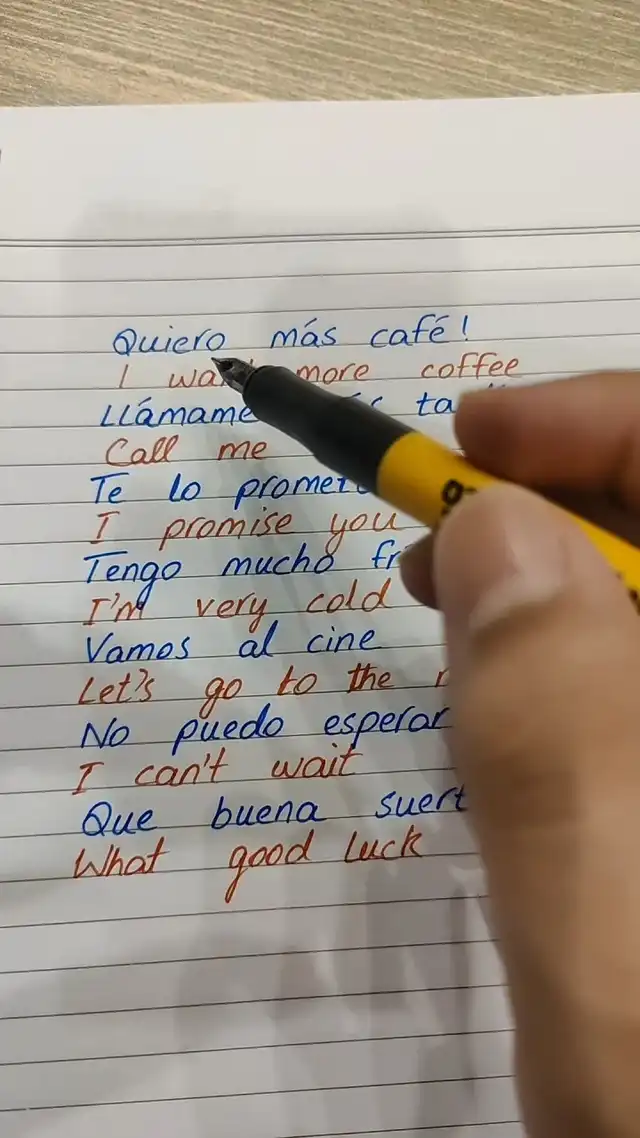 Quiero más café!
I more coffee
Llámame
Call me
Te lo
I promise you
Tengo mucho
I'm very cold
Vamos al cine
Let's go to the
No puedo esperar
I can't wait
Que buena
What good luck